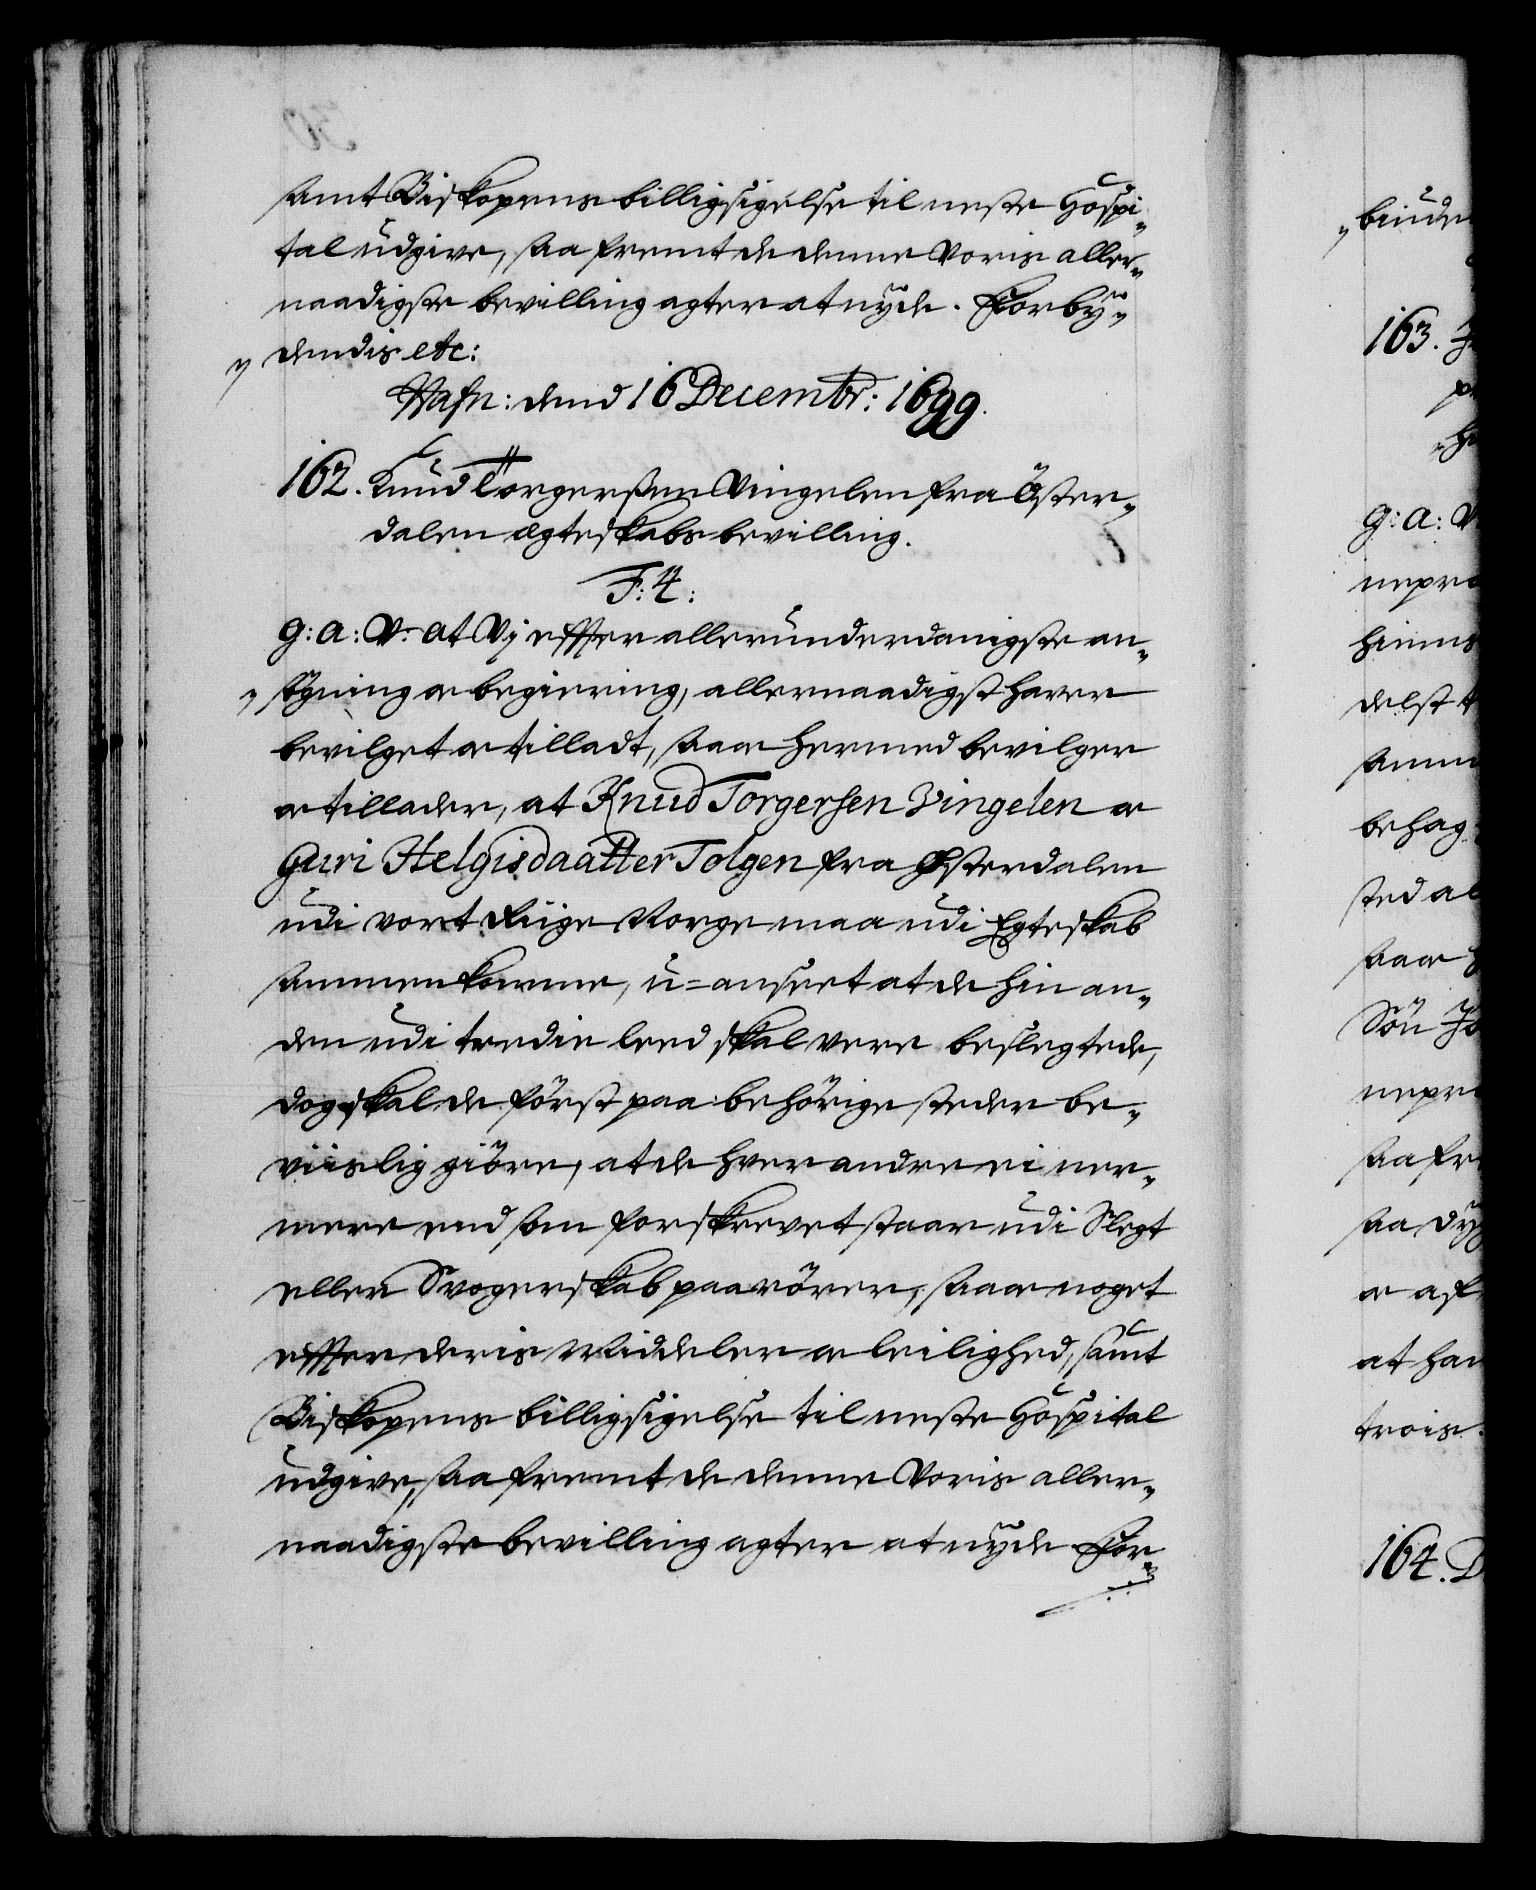 samt Biskopens billigsigelse til neste Hospi„
tal udgive, saa fremt de denne Voris aller„
naadigste bevilling agter at nyde. Forby„
„ dendis etc:
Hafn: dend 16 Decembr: 1699.
162. Knud Torgerßen Vingelen fra Öster„
dalen egteskabs bevilling.
F: 4:
G: a: V: at Vj effter allerunderdanigste an„
„ sögning oc begiering, allernaadigst haver
bevilget oc tilladt, saa oc hermed bevilger
oc tillader, at Knud Torgersen Vingelen oc
Guri Helgisdaatter Tolgen fra Østerdalen
udi vort Riige Norge maa udi Egteskab
sammenkomme, u=anseet at de hin an„
den udi tredie leed skal vere beslegtede,
dog skal de först paa behörige steder be„
viislig giöre, at de hver andre ei ner„
mere end som forskrevet staar udi Slegt
eller Svogerskab paarörer, saa oc noget
effter deris Middeler oc leilighed, samt
Biskopens billigsigelse til neste Hospital
udgive, saa fremt de denne Voris aller„
naadigste bevilling agter at nyde For„
163.
g: a: V
nepre
hinns
delst
behag
sted al
saa oc
Sön Jo
nepre
saa fre
saa dy
oc af
at han
trois.
164. D